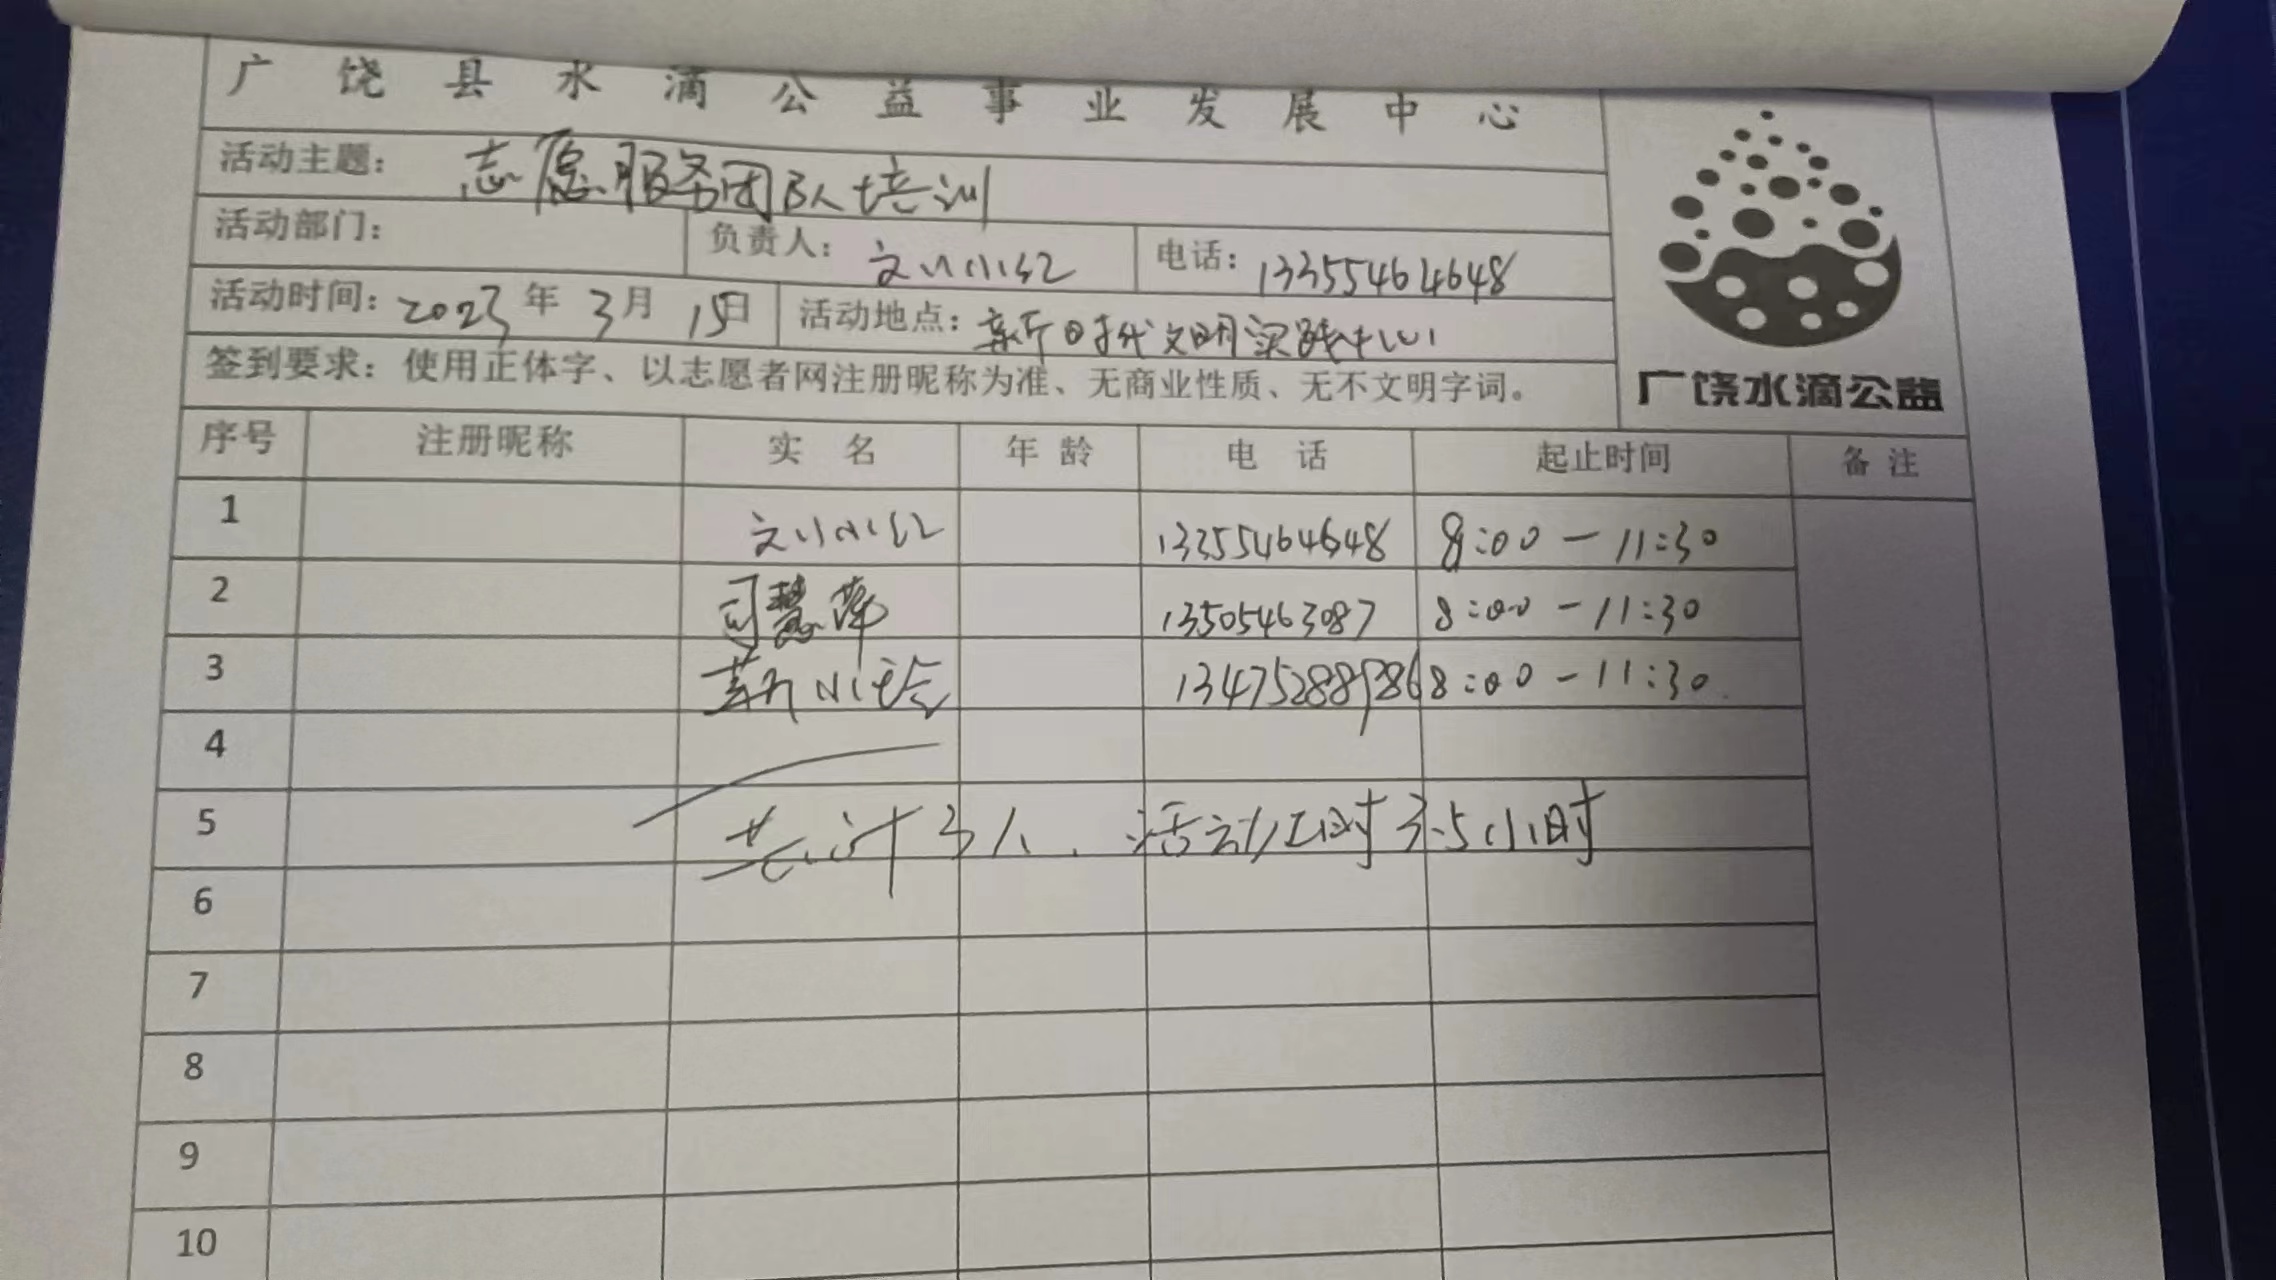 广饶县水滴公益事业发展中心
活动主题： 志愿服务团队培训
活动部门： 负责人： 刘小红 电话：13355464648
活动时间：2023年3月15日 活动地点：新时代文明实践中心
签到要求：使用正体字、以志愿者网注册昵称为准、无商业性质、无不文明字词。
广饶水滴公益
序号 注册昵称 实 名 年 龄 电 话 起止时间 备 注
1 刘小红 13355464648 8:00-11:30
2 司慧萍 13505463087 8:00-11:30
3 小玲 13475288986 8:00-11:30
4
5 共计3人、活动工时3.5小时
6
7
8
9
10